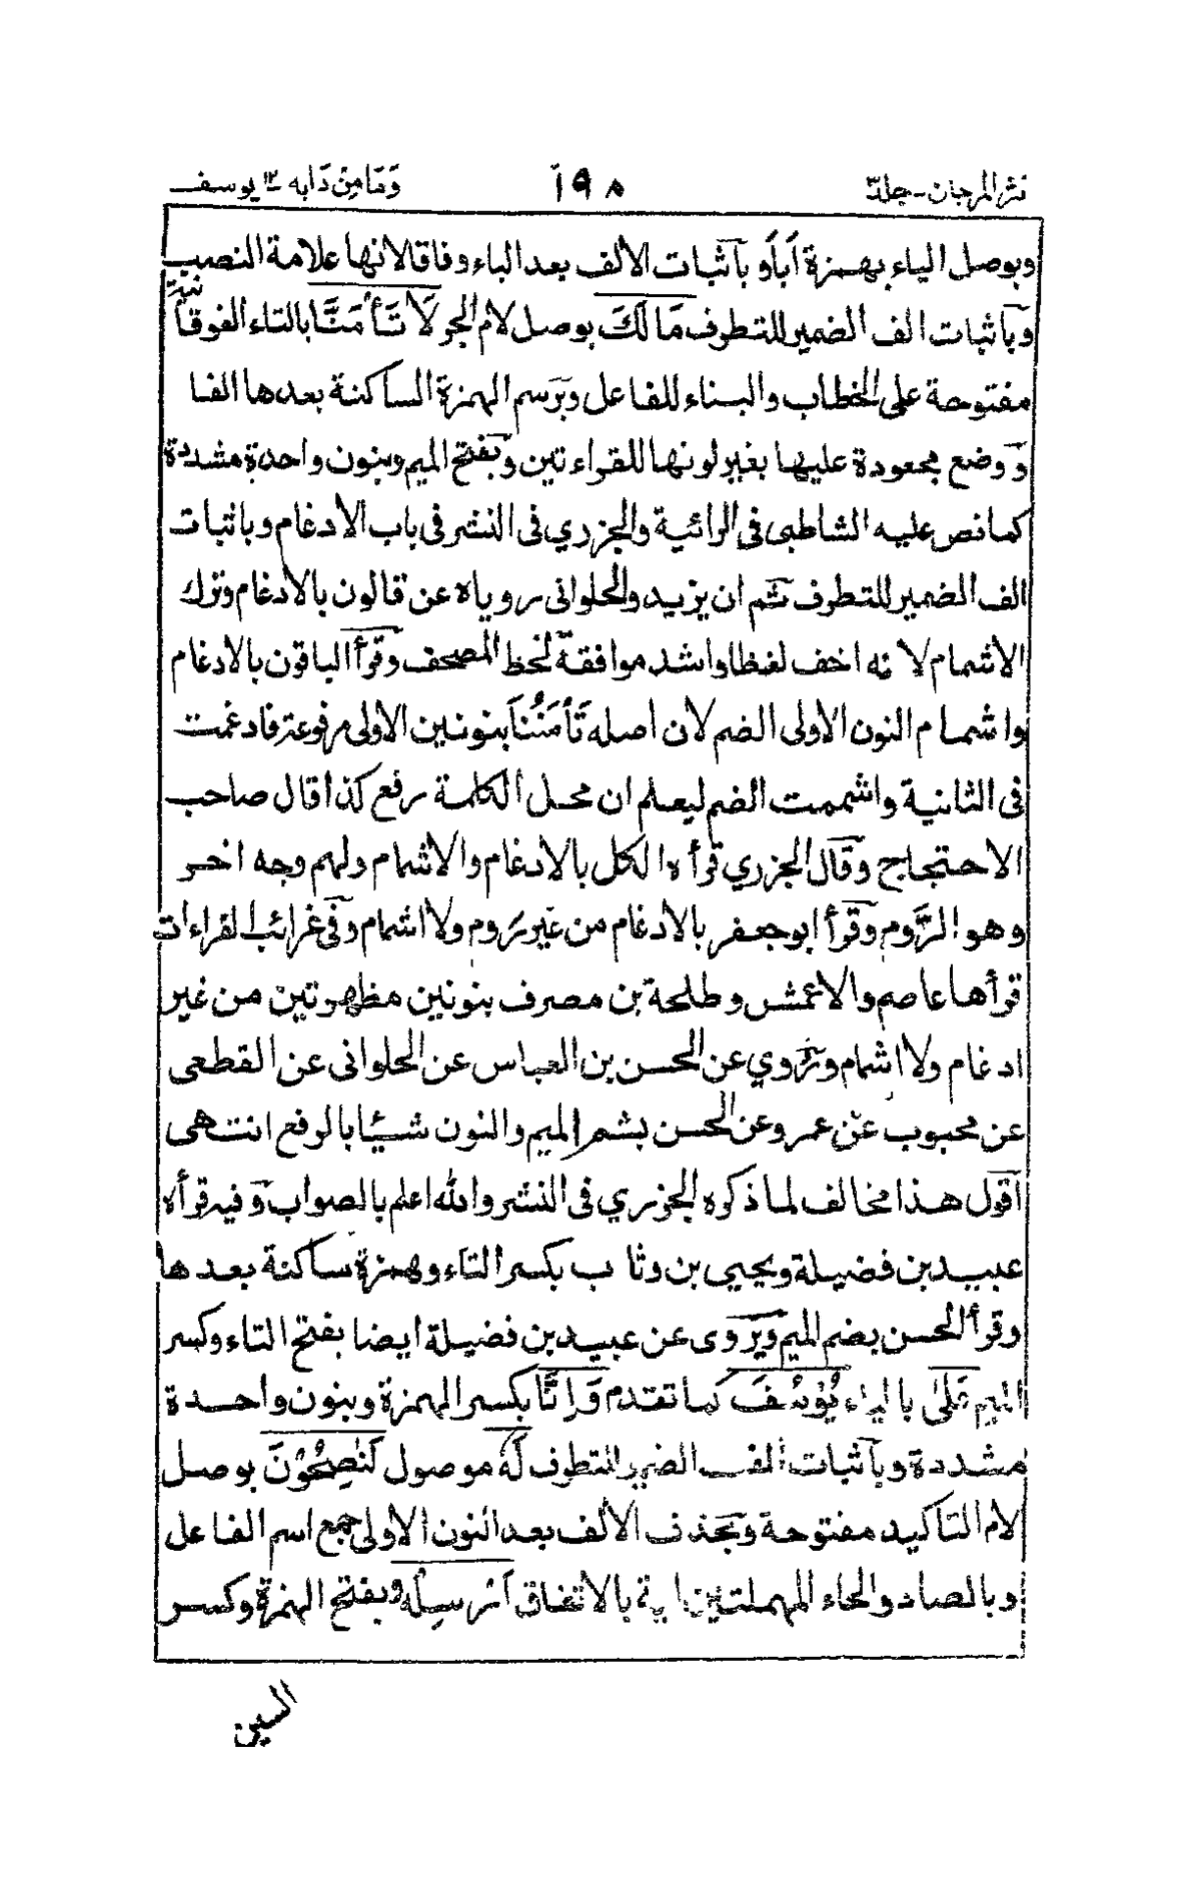 نثر المرجان-جلد٣ ١٩٨ وَمَا مِنْ دَابه ١٢ يوسف
وبوصل الياء بهمزة أَبَاَ وبآثبات الالف بعد الباء وفاقا لانها علامة النصب
وبآثبات الف الضمير للتطرف مَا لَكَ بوصل لام الجر لَا تَأْمَنَّا بالتاء الفوقانية
مفتوحة على الخطاب والبناء للفاعل وبرسم الهمزة الساكنة بعدها الفا
ووضع مجعودة عليها بغير لونها للقراءتين وبفتح الميم وبنون واحدة مشددة
كما نص عليه الشاطبى فى الرائية والجزري فى النشر فى باب الادغام وباثبات
الف الضمير للتطرف ثم ان يزيد والحلوانى روياه عن قالون بالادغام وترك
الاشمام لانه اخف لفظا واشد موافقة لخط المصحف وقرأ الباقون بالادغام
واشمام النون الاولى الضم لان اصله تَأْمَنُنَا بنونين الاولى مرفوعة فادغمت
فى الثانية واشممت الضم ليعلم ان محل الكلمة رفع كذا قال صاحب
الاحتجاج وقال الجزري قرأه الكل بالادغام والاشمام ولهم وجه اخر
وهو الرَّوم وقرأ ابو جعفر بالادغام من غير روم ولا اشمام وفى غرائب القراءات
قرأها عاصم والاعمش وطلحة بن مصرف بنونين مظهرتين من غير
ادغام ولا اشمام وروي عن الحسن بن العباس عن الحلوانى عن القطعى
عن محبوب عن عمرو عن الحسن بشم الميم والنون شيئا بالرفع انتهى
اقول هذا مخالف لما ذكره الجزري فى النشر والله اعلم بالصواب وفيه قرأه
عبيد بن فضيلة ويحيى بن وثاب بكسر التاء وهمزة ساكنة بعدها
وقرأ الحسن بضم الميم ويروى عن عبيد بن فضيلة ايضا بفتح التاء وكسر
الميم عَلَىٰ بالياء يُوْسُفَ كما تقدم وَاِنَّا بكسر الهمزة وبنون واحدة
مشددة وبآثبات الف الضمير المتطرف لَهٗ موصول لَنٰصِحُوْنَ بوصل
لام التاكيد مفتوحة وبحذف الالف بعد النون الاولى جمع اسم الفاعل
وبالصاد والحاء المهملتين اية بالاتفاق اَرْسِلْهُ وبفتح الهمزة وكسر
السين